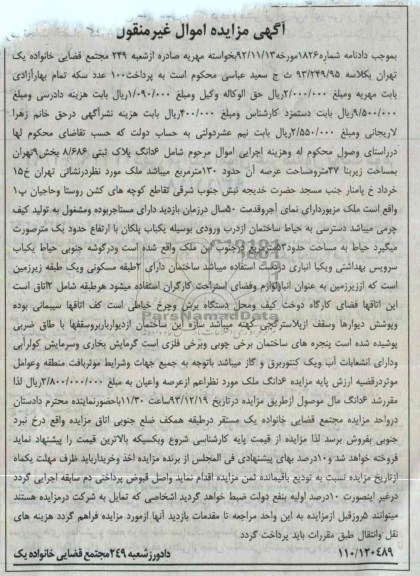 آگهی مزایده اموال غیرمنقول
بموجب دادنامه شماره۱۸۲۶مورخه۹۲/۱۱/۱۳بخواسته مهریه صادره ازشعبه ۲۴۹ مجتمع قضایی خانواده یک
تهران بکلاسه ۹۳/۲۴۹/۹۵ ث ج سعید عباسی محکوم است به پرداخت۱۰۰ عدد سکه تمام بهارآزادی
بابت مهریه ومبلغ ۲/۰۰۰/۰۰۰ریال حق الوکاله وکیل ومبلغ ۱/۰۹۰/۰۰۰ریال بابت هزینه دادرسی ومبلغ
۹/۵۰۰/۰۰۰ریال بابت دستمزد کارشناس ومبلغ ۴۰۰/۰۰۰ریال بابت هزینه نشرآگهی درحق خانم زهرا
لاریجانی ومبلغ ۲/۵۵۰/۰۰۰ریال بابت نیم عشردولتی به حساب دولت که حسب تقاضای محکوم لها
درراستای وصول محکوم له وهزینه اجرایی اموال مرحوم شامل ۶دانگ پلاک ثبتی ۸/۶۸۶ بخش۹تهران
بمساحت زیربنا ۲۷مترومساحت عرصه آن حدود ۱۳۰مترمربع میباشد ملک مورد نظردرنشانی تهران خ۱۵
خرداد خ پامنار جنب مسجد حضرت خدیجه نبش جنوب شرقی تقاطع کوچه های کشن روستا وحاجیان پ۱
واقع است ملک مزبوردارای نمای آجروقدمت ۵۰سال درزمان بازدید دارای مستاجربوده ومشغول به تولید کیف
چرمی میباشد دسترسی به حیاط ساختمان ازدرب ورودی بوسیله یکباب پلکان با ارتفاع حدود یک مترصورت
میگیرد حیاط به مساحت حدود مترمربع درجنوب این ملک واقع شده است ودرگوشه جنوبی حیاط یکباب
سرویس بهداشتی ویکبا انباری دردست استفاده میباشد ساختمان دارای ۲طبقه مسکونی ویک طبقه زیرزمین
است که اززیرزمین به عنوان انبارلوازم وفضای استراحت کارگران استفاده میشود هرطبقه شامل ۲اتاق است
این اتاقها فضای کارگاه دوخت کیف ومحل دستگاه برش وچرخ خیاطی است کف اتاقها سیمانی بوده
وپوشش دیوارها وسقف ازپلاسترگچی کهنه میباشد سازه این ساختمان ازدیوارباربروسقفها با طاق ضربی
پوشیده شده است پنجره های ساختمان برخی چوبی وبرخی فلزی است گرمایش بخاری وسرمایش کولرآبی
ودارای انشعابات آب ویک کنتوربرق و گاز میباشد باتوجه به جمیع جهات وشرایط موثربافت منطقه وعوامل
موثردرقضیه ارزش پایه مزایده ۶دانگ ملک مورد نظراعم ازعرصه واعیان به مبلغ ۲/۸۰۰/۰۰۰/۰۰۰ریال لذا
مقررشد ۶دانگ مال موصول ازطریق مزایده درتاریخ ۹۳/۱۲/۱۹ساعت ۱۱/۳۰باحضورنماینده محترم دادستان
درواحد مزایده مجتمع قضایی خانواده یک مستقر درطبقه همکف ضلع جنوبی اتاق مزایده واقع درخ نبرد
جنوبی بفروش برسد لذا مزایده از قیمت پایه کارشناسی شروع وبکسیکه بالاترین قیمت را پیشنهاد نماید
فروخته خواهد شد و۱۰درصد بهای پیشنهادی فی المجلس از برنده مزایده اخذ وخریدارباید ظرف مهلت یکماه
ازتاریخ مزایده نسبت به تودیع باقیمانده ثمن مزایده اقدام نماید واصل قبوض پرداختی دم سابقه اجرایی گردد
درغیر اینصورت ۱۰درصد اولیه بنفع دولت ضبط خواهد گردید اشخاصی که تمایل به شرکت درمزایده هستند
میتوانند ۵روزقبل ازمزایده به این واحد مراجعه تا مقدمات بازدید آنها ازمورد مزایده فراهم گردد هزینه های
نقل وانتقال طبق مقررات باید پرداخت گردد
۱۱۰/۱۲۰۴۸۹ دادورزشعبه ۲۴۹مجتمع قضایی خانواده یک
ParsNamadData